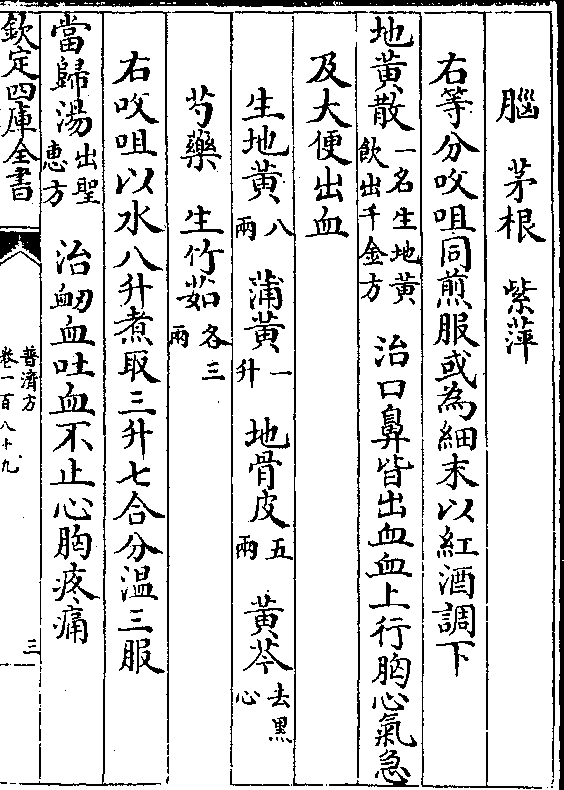 腦　茅根　紫萍
右等分㕮咀同煎服或為細末以紅酒調下
地黄散一名生地黄飲出千金方　治口鼻皆出血血上行胸心氣急
及大便出血
生地黄八兩　蒲黄一升　地骨皮五兩　黄芩去黑心
芍藥　生竹茹各三兩
右㕮咀以水八升煮取三升七合分温三服
當歸湯出聖惠方　治衂血吐血不止心胸疼痛
欽定四庫全書
普濟方
卷一百八十九
三